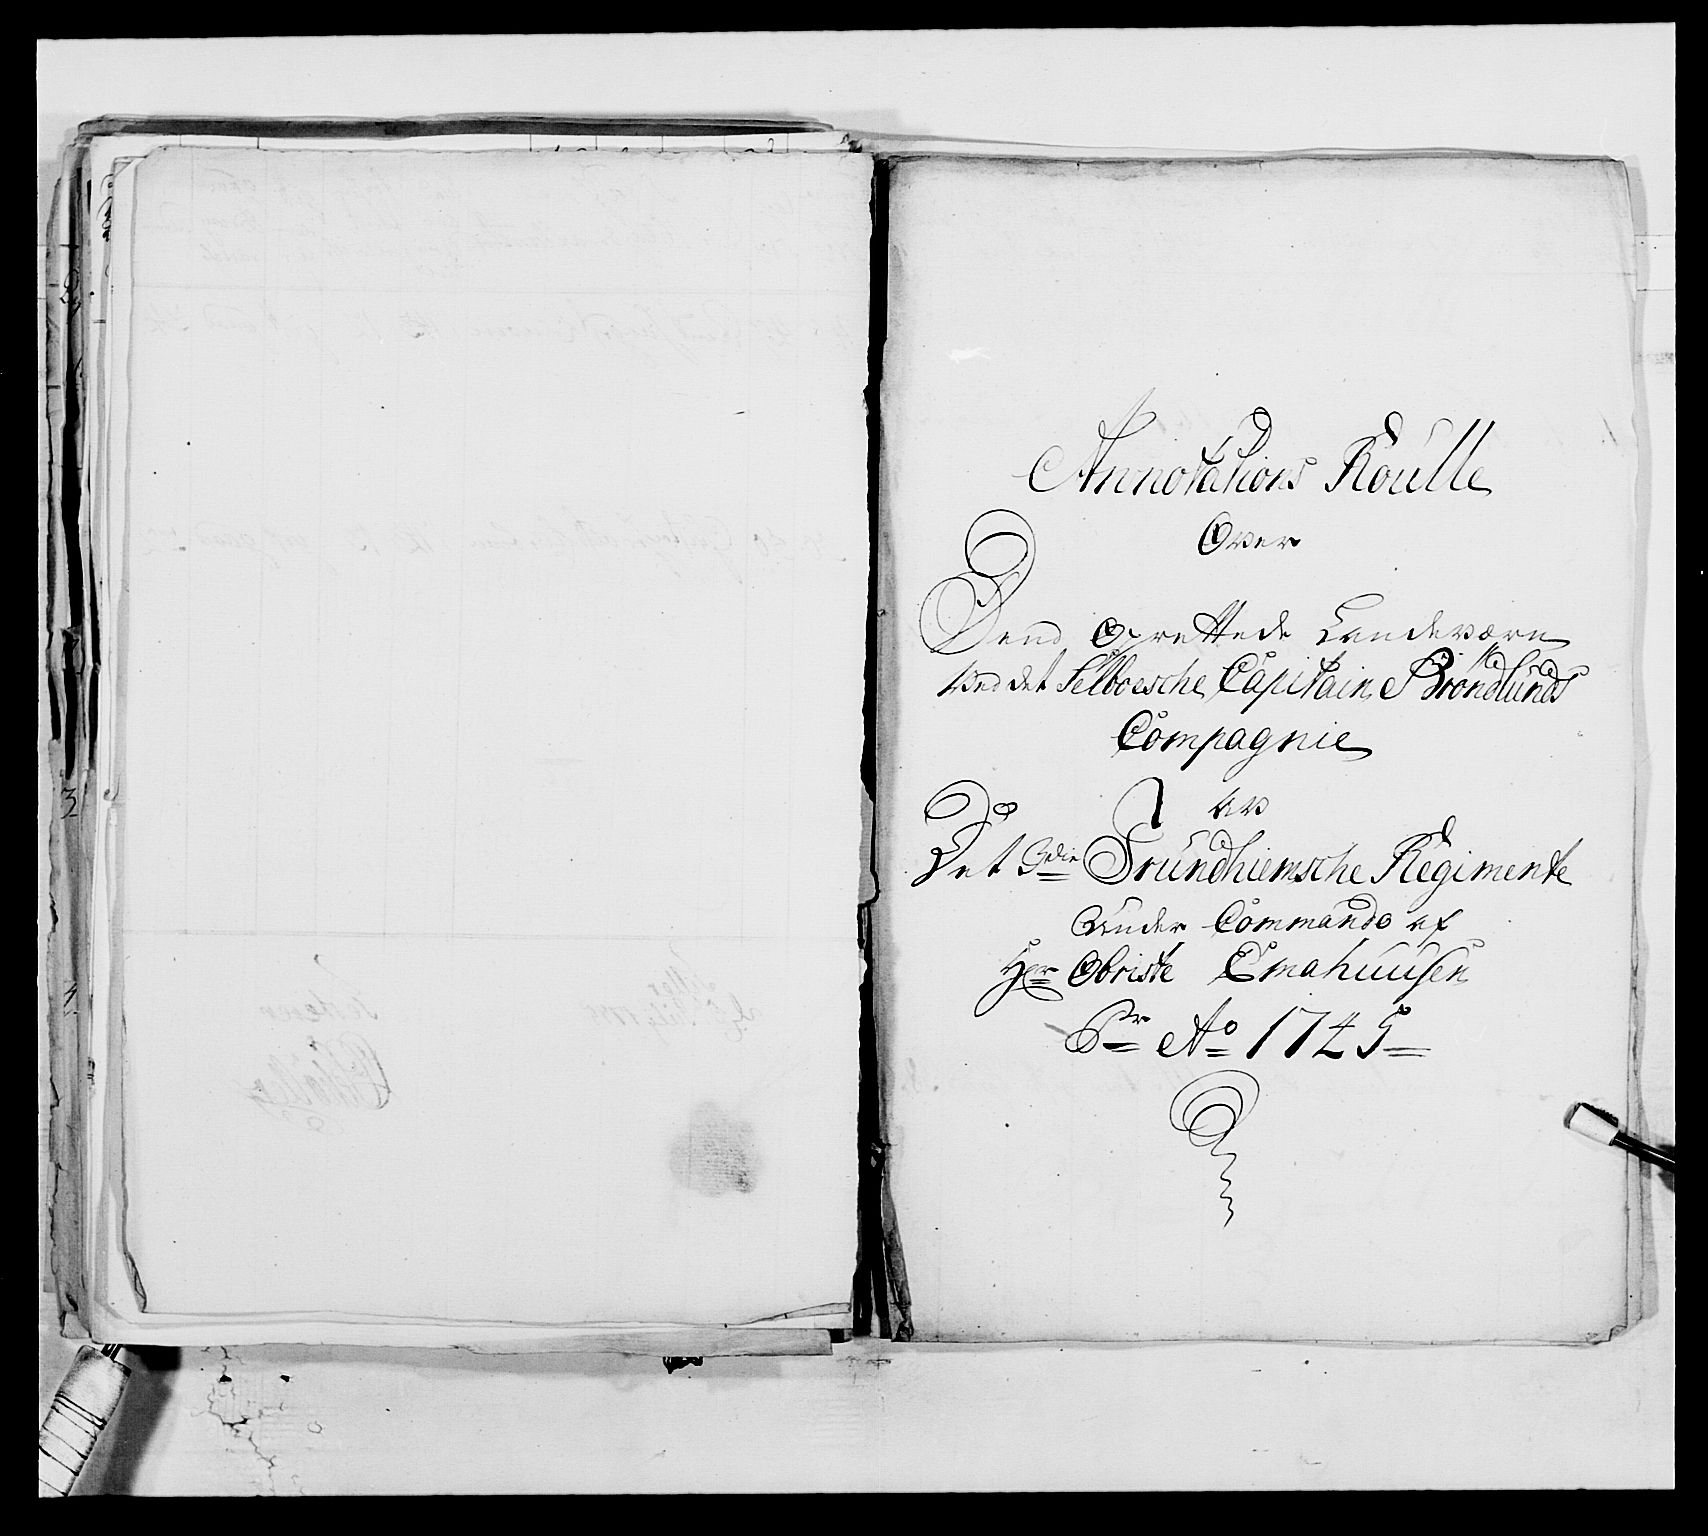 Annotations Roulle
Over
Dend oprettede Landeværn
ved det Selboesche Capitain Bröndlunds
Compagnie
av
Det 3die Trundhiemsche Regimente
Under Commando af
Hgr Obriste Emahuusen
Pr Ao 1745